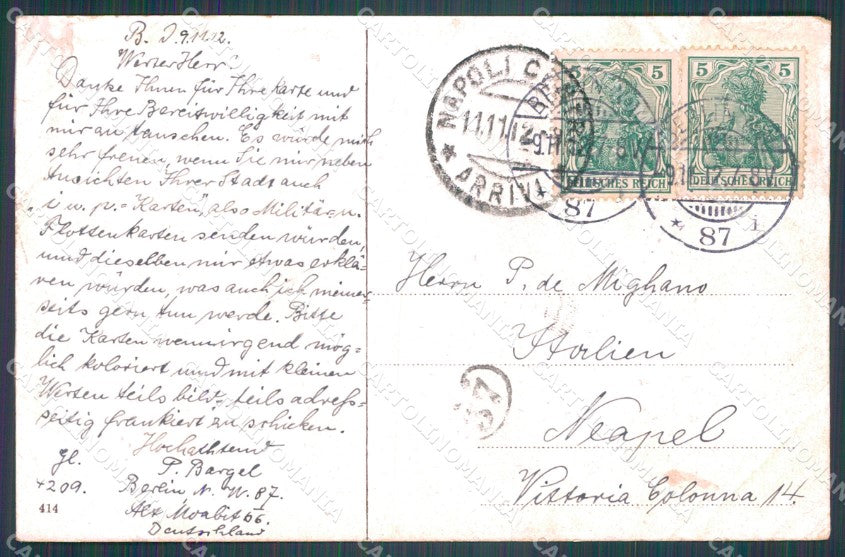 B. d. 9.11.12.
Werter Herr!
Danke Ihnen für Ihre Karte und
für Ihre Bereitwilligkeit mit
mir zu tauschen. Es würde mich
sehr freuen, wenn Sie mir neben
Ansichten Ihrer Stadt auch
"i. w. p. = Karten", also Militär u.
Flottenkarten senden würden,
und dieselben mir etwas erklä=
ren würden, was auch ich meiner=
seits gern tun werde. Bitte
die Karten wennirgend mög=
lich koloriert und mit kleinen
Werten teils bild=, teils adreß=
seitig frankiert zu schicken.
Hochachtend
Gl. P. Bargel
+209. Berlin N. W. 87.
Alt Moabit 66.
Deutschland
414
NAPOLI
11.11.12
* ARRIVI
5 5
DEUTSCHES REICH DEUTSCHES REICH
87
* 87 i
Herrn P. de Mighano
Italien
Neapel
Vittoria Colonna 14.
CARTOLINOMANIA